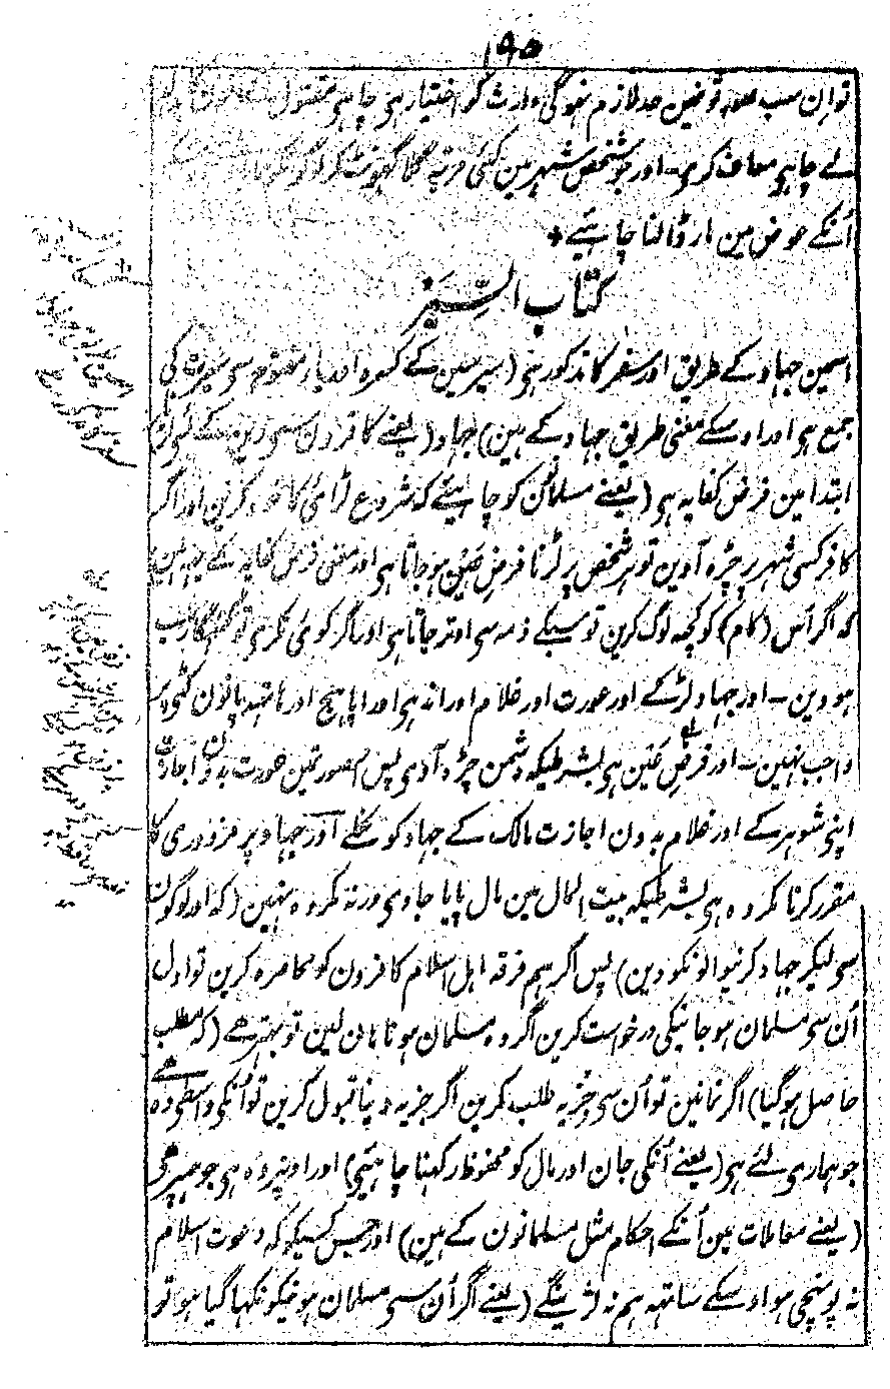 ۱۹۵
توان سب صورتونمین حد لازم نہوگی وارث کو اختیار ہی چاہی
لے چاہی معاف کری۔ اور جو شخص شہر مین کئی مرتبہ گلا گھونٹ کر
اُنکے عوض مین مار ڈالنا چاہئیے +
کتاب السِّیَر
اسمین جہاد کے طریق اور سفر کا مذکور ہی (سیر سین کے کسرہ اور یاء مفتوحہ سی سیرت کی
جمع ہی اور اوسکے معنی طریق جہاد کے ہین) جہاد (یعنے کافرون سی دین کے لئی لڑنا)
ابتدا مین فرض کفایہ ہی (یعنے مسلمانون کو چاہیئے کہ شروع لڑائی کا خود کرین اور اگر
کافر کسی شہر پر چڑہ آوین تو ہر شخص پر لڑنا فرض عین ہو جاتا ہی اور معنی فرض کفایہ کے یہہ ہین
کہ اگر اُس (کام) کو کچہ لوگ کرین تو سبکے ذمہ سی اوتر جاتا ہی اور اگر کوئی نکری تو گنہگار سب
ہووین۔ اور جہاد لڑکے اور عورت اور غلام اور اندہی اور اپاہج اور ہاتہہ پانون کٹی پر
واجب نہین۔ اور فرض عین ہی بشرطیکہ دشمن چڑہ آوی پس اسصورتمین عورت بدون اجازت
اپنی شوہر کے اور غلام بدون اجازت مالک کے جہاد کو نکلے اور جہاد پر مزدوری کا
مقرر کرنا مکروہ ہی بشرطیکہ بیت المال مین مال پایا جاوی ورنہ مکروہ نہین (کہ اور لوگون
سی لیکر جہاد کرنیوالونکو دین) پس اگر ہم فرقہ اہل اسلام کافرون کو محاصرہ کرین تو اول
اُن سی مسلمان ہو جانیکی درخواست کرین اگر وہ مسلمان ہونا مان لین تو بہتر ہے (کہ مطلب
حاصل ہوگیا) اگر نمانین تو اُن سی جزیہ طلب کرین اگر جزیہ دینا قبول کرین تو اُنکی واسطی وہ ہے
جو ہماری لئے ہی (یعنے اُنکی جان اور مال کو محفوظ رکہنا چاہئیے) اور اونپر وہ ہی جو ہمپر ہی
(یعنے معاملات مین اُنکے احکام مثل مسلمانون کے ہین) اور جس کسیکو کہ دعوت اسلام
نہ پونہچی ہو اوسکے ساتہہ ہم نہ لڑینگے (یعنے اگر اُن سی مسلمان ہونیکو نکہا گیا ہو تو